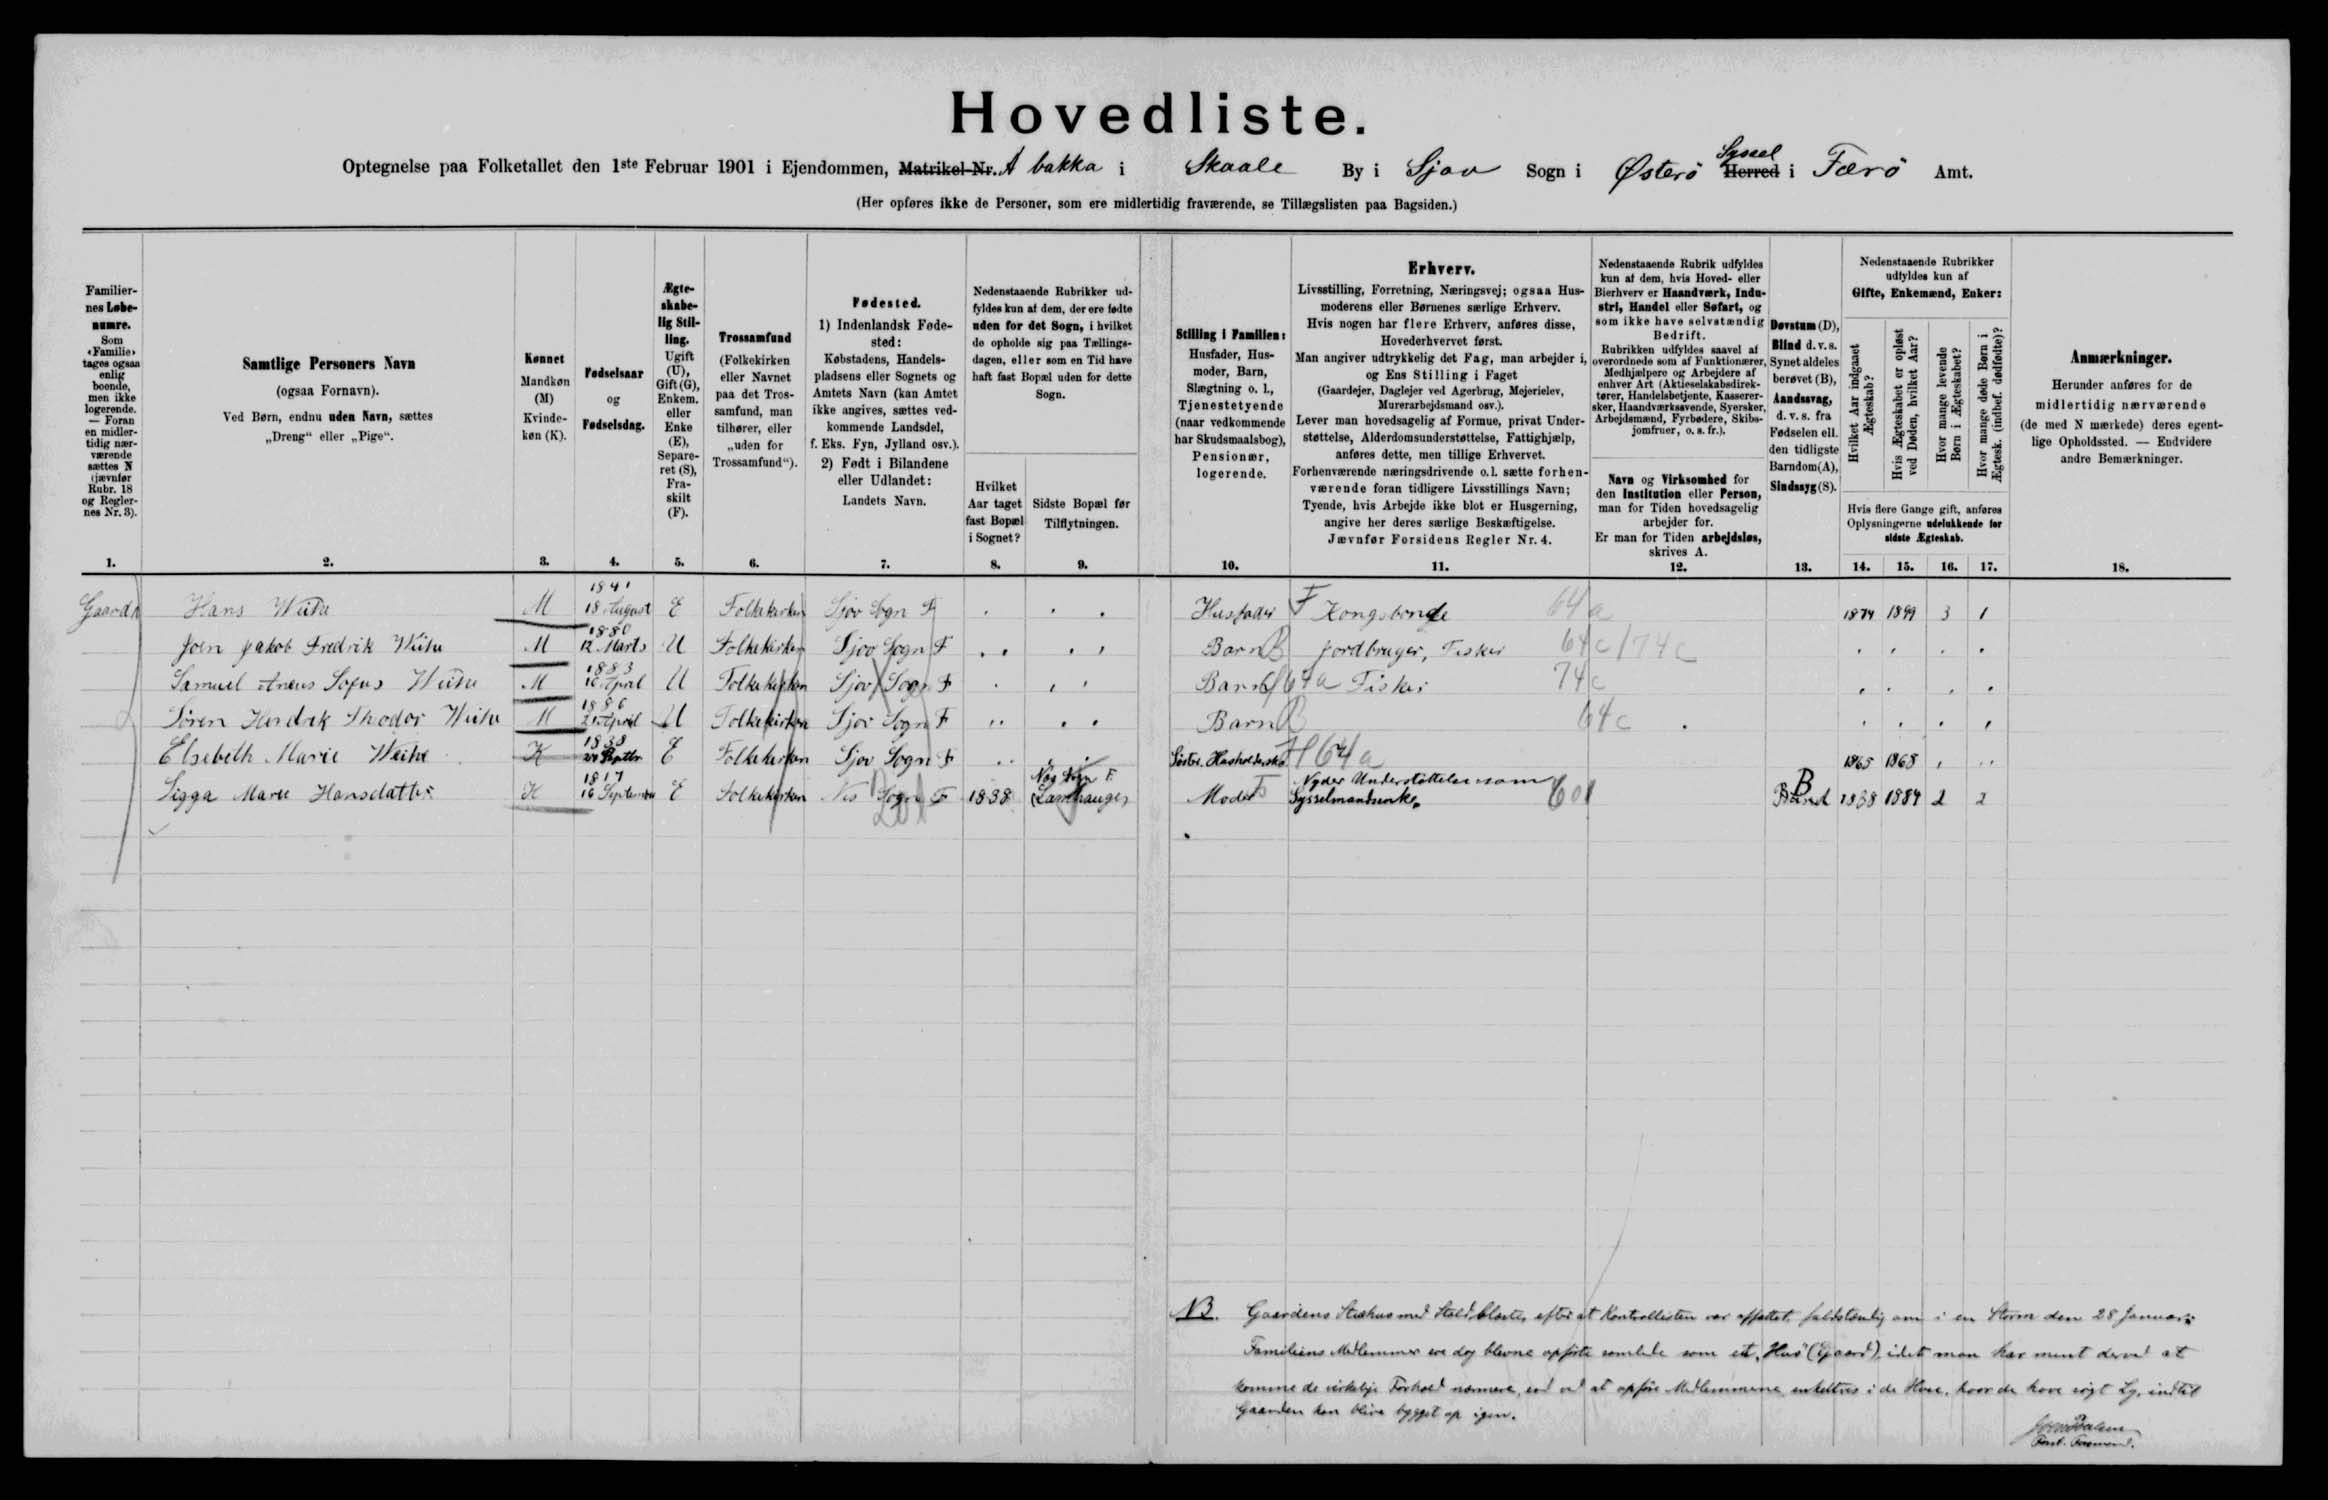 Hovedliste.
Optegnelse paa Folketallet den 1ste Februar 1901 i Ejendommen, Matrikel-Nr. A bakka i Skaale By i Sjov Sogn i Østerö Herred Syssel i Færö Amt.
(Her opføres ikke de Personer, som ere midlertidig fraværende, se Tillægslisten paa Bagsiden.)
Familiernes Løbenumre.
Som «Familie» tages ogsaa enlig boende, men ikke logerende. — Foran en midlertidig nærværende sættes N (jævnfør Rubr. 18 og Reglernes Nr. 3).
1.
Samtlige Personers Navn
(ogsaa Fornavn).
Ved Børn, endnu uden Navn, sættes
„Dreng“ eller „Pige“.
2.
Kønnet
Mandkøn (M)
Kvindekøn (K).
3.
Fødselsaar
og
Fødselsdag.
4.
Ægteskabelig Stilling.
Ugift (U), Gift (G), Enkem. eller Enke (E), Separeret (S), Fraskilt (F).
5.
Trossamfund
(Folkekirken eller Navnet paa det Trossamfund, man tilhører, eller „uden for Trossamfund“).
6.
Fødested.
1) Indenlandsk Fødested:
Købstadens, Handelspladsens eller Sognets og Amtets Navn (kan Amtet ikke angives, sættes vedkommende Landsdel, f. Eks. Fyn, Jylland osv.).
2) Født i Bilandene eller Udlandet:
Landets Navn.
7.
Nedenstaaende Rubrikker udfyldes kun af dem, der ere fødte uden for det Sogn, i hvilket de opholde sig paa Tællingsdagen, eller som en Tid have haft fast Bopæl uden for dette Sogn.
Hvilket Aar taget fast Bopæl i Sognet?
8.
Sidste Bopæl før Tilflytningen.
9.
Stilling i Familien:
Husfader, Husmoder, Barn, Slægtning o. l., Tjenestetyende (naar vedkommende har Skudsmaalsbog), Pensionær, logerende.
10.
Erhverv.
Livsstilling, Forretning, Næringsvej; ogsaa Husmoderens eller Børnenes særlige Erhverv.
Hvis nogen har flere Erhverv, anføres disse, Hovederhvervet først.
Man angiver udtrykkelig det Fag, man arbejder i, og Ens Stilling i Faget
(Gaardejer, Daglejer ved Agerbrug, Mejerielev, Murerarbejdsmand osv.).
Lever man hovedsagelig af Formue, privat Understøttelse, Alderdomsunderstøttelse, Fattighjælp, anføres dette, men tillige Erhvervet.
Forhenværende næringsdrivende o. l. sætte forhenværende foran tidligere Livsstillings Navn;
Tyende, hvis Arbejde ikke blot er Husgerning, angive her deres særlige Beskæftigelse.
Jævnfør Forsidens Regler Nr. 4.
11.
Nedenstaaende Rubrik udfyldes kun af dem, hvis Hoved- eller Bierhverv er Haandværk, Industri, Handel eller Søfart, og som ikke have selvstændig Bedrift.
Rubrikken udfyldes saavel af overordnede som af Funktionærer, Medhjælpere og Arbejdere af enhver Art (Aktieselskabsdirektører, Handelsbetjente, Kasserersker, Haandværkssvende, Syersker, Arbejdsmænd, Fyrbødere, Skibsjomfruer, o. s. fr.).
Navn og Virksomhed for den Institution eller Person, man for Tiden hovedsagelig arbejder for.
Er man for Tiden arbejdsløs, skrives A.
12.
Døvstum (D), Blind d. v. s. Synet aldeles berøvet (B), Aandssvag, d. v. s. fra Fødselen ell. den tidligste Barndom (A), Sindssyg (S).
13.
Nedenstaaende Rubrikker udfyldes kun af
Gifte, Enkemænd, Enker:
Hvilket Aar indgaaet Ægteskab?
Hvis Ægteskabet er opløst ved Døden, hvilket Aar?
Hvor mange levende Børn i Ægteskabet?
Hvor mange døde Børn i Ægtesk. (indbef. dødfødte)?
Hvis flere Gange gift, anføres Oplysningerne udelukkende for sidste Ægteskab.
14. 15. 16. 17.
Anmærkninger.
Herunder anføres for de midlertidig nærværende (de med N mærkede) deres egentlige Opholdssted. — Endvidere andre Bemærkninger.
18.
Gaard Hans Weihe M 1841 18 August E Folkekirken Sjov Sogn F Husfader F Kongsbonde 64 a 1874 1899 3 1
Joen Jakob Fredrik Weihe M 1880 12 Marts U Folkekirken Sjov Sogn F Barn B Jordbruger, Fisker 64 c / 74 c
Samuel Sofus Weihe M 1883 16 April U Folkekirken Sjov Sogn F Barn 64 a Fisker 74 c
Sören Hendrik Thodor Weihe M 1886 21 April U Folkekirken Sjov Sogn F Barn B 64 c
Elsebeth Marie Weihe K 1838 E Folkekirken Sjov Sogn F Söster. Husholderske H 64 a 1865 1868
Sigga Marie Hansdatter K 1817 16 September E Folkekirken Nes Sogn F 1838 Nes Sogn F. (Lamhauge) Moder F Nyder Understöttelse som Sysselmandsenke 601 Blind B 1838 1884 2 2
201
NB. Gaardens Stuehus med Stald blæste, efter at Kontrollisten var affattet, fuldstændig om i en Storm den 28 Januar;
Familiens Medlemmer ere dog blevne opførte samlede som et „Hus“ (Gaard), idet man har ment derved at
komme de virkelige Forhold nærmere, end ved at opføre Medlemmerne enkeltvis i de Huse, hvor de have søgt Ly, indtil
Gaarden kan blive bygget op igen.